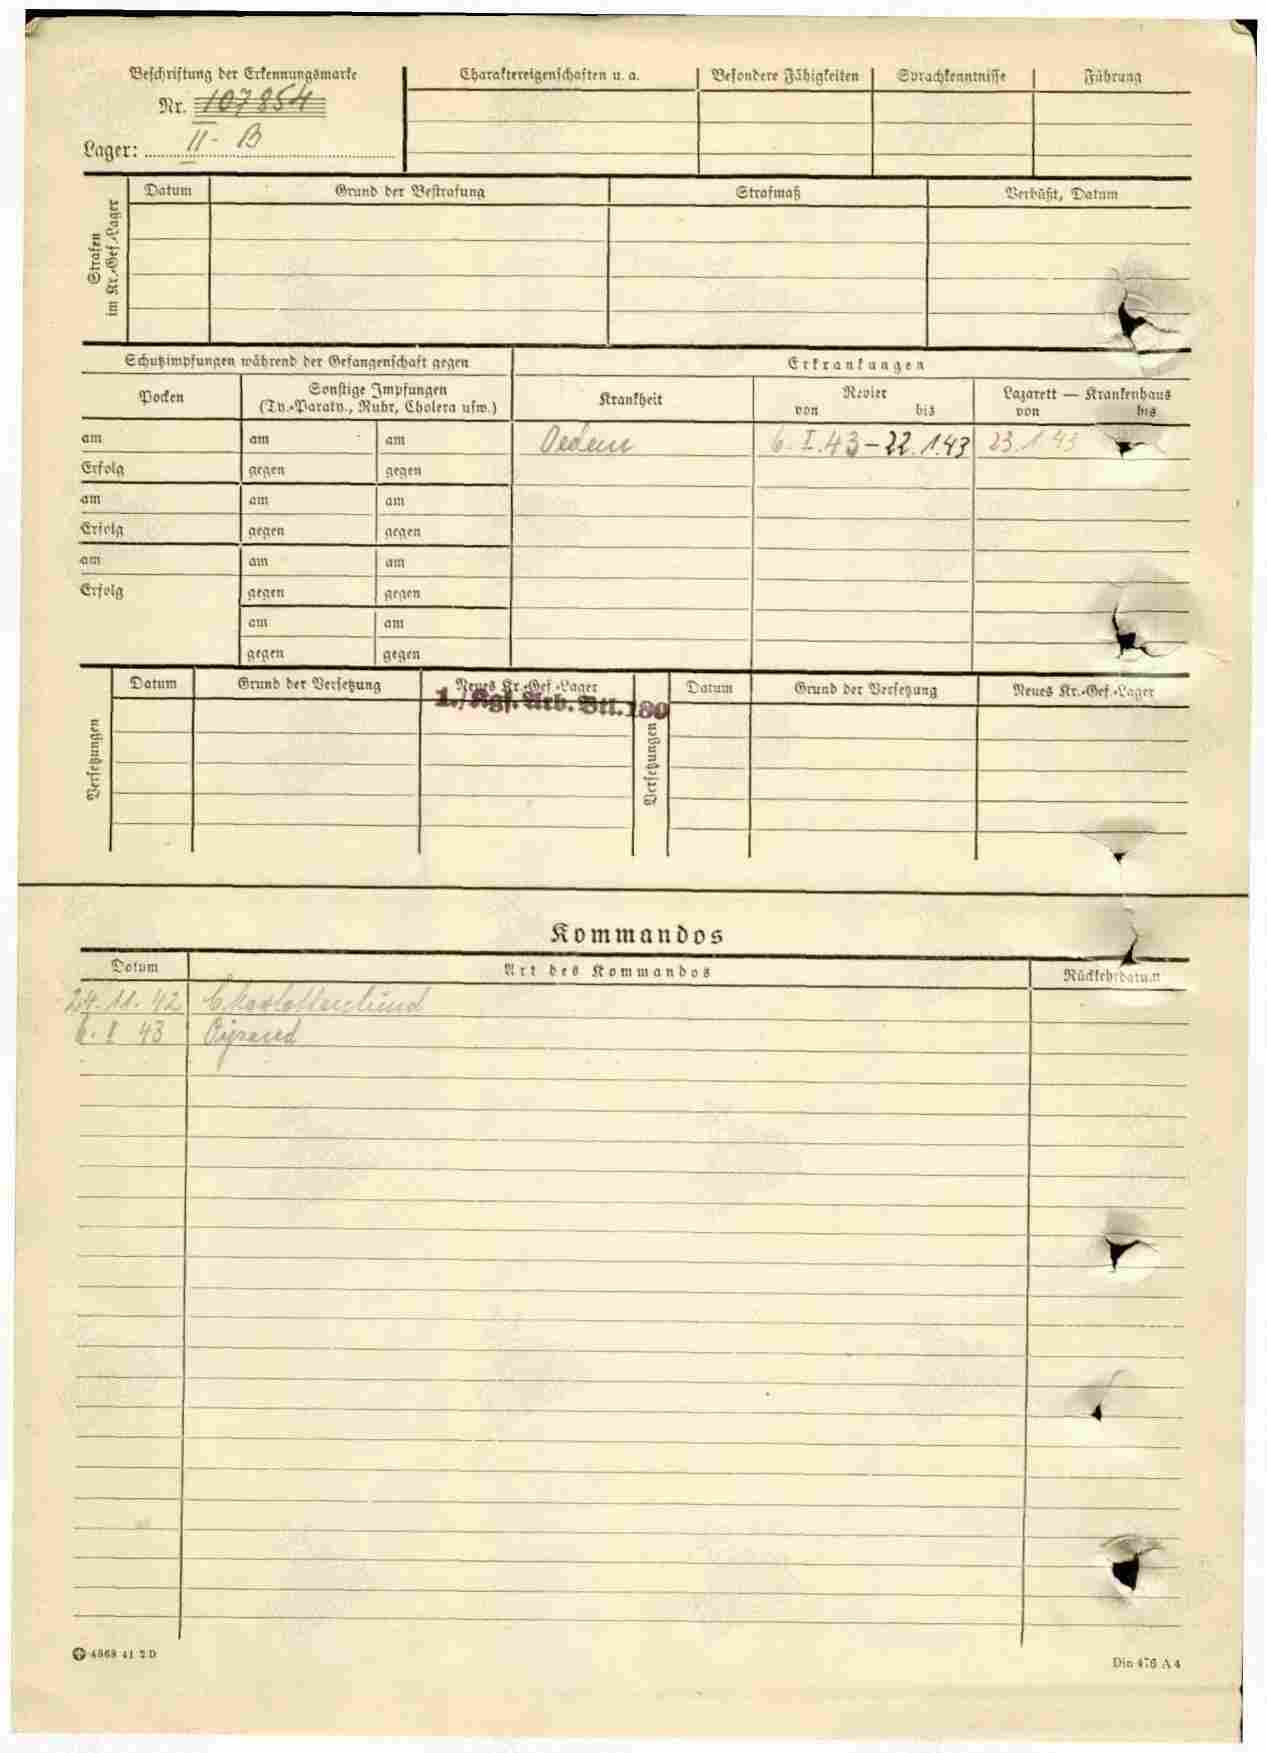 Beschriftung der Erkennungsmarke
Nr. 107854
Lager: II-B
Charaktereigenschaften u. a. Besondere Fähigkeiten Sprachkenntnisse Führung
Strafen
im Kr.-Gef.-Lager
Datum Grund der Bestrafung Strafmaß Verbüßt, Datum
Schutzimpfungen während der Gefangenschaft gegen
Pocken
Sonstige Impfungen
(Ty.-Paraty., Ruhr, Cholera usw.)
am am am
Erfolg gegen gegen
am am am
Erfolg gegen gegen
am am am
Erfolg gegen gegen
am am
gegen gegen
Erkrankungen
Krankheit
Revier
von bis
Lazarett — Krankenhaus
von bis
Oedem 6. I. 43 – 22. 1. 43 23. 1. 43
Versetzungen
Datum Grund der Versetzung Neues Kr.-Gef.-Lager
1./Kgf. Arb. Btl. 180
Versetzungen
Datum Grund der Versetzung Neues Kr.-Gef.-Lager
Kommandos
Datum Art des Kommandos Rückkehrdatum
24. 11. 42 Charlottenlund
6. I 43
4868 41 2 D
Din 476 A 4